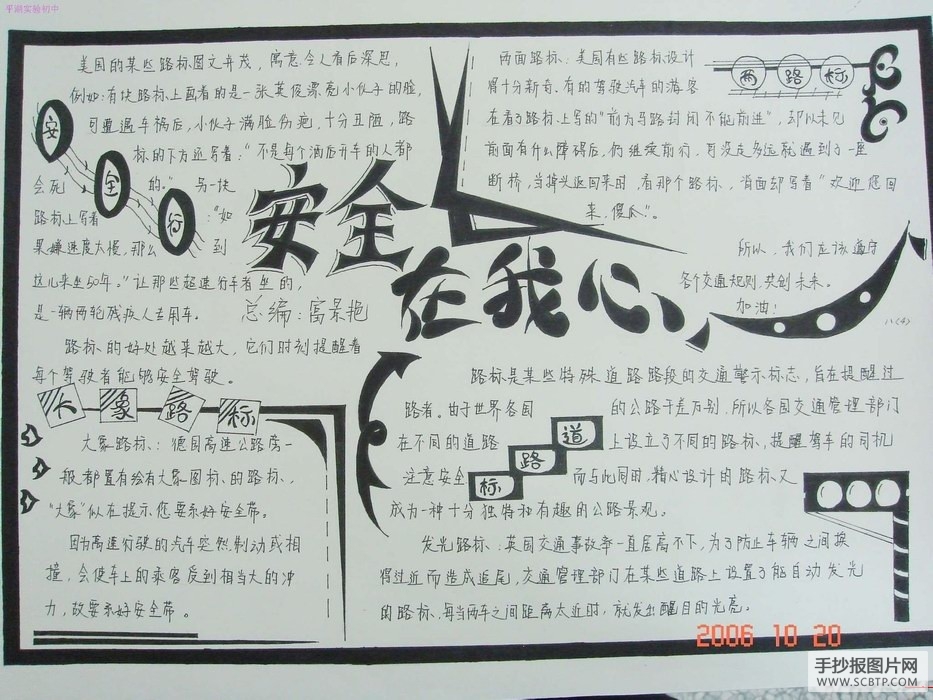 平湖实验初中
美国的某些路标图文并茂，寓意令人看后深思，
例如:有块路标上画着的是一张英俊漂亮小伙子的脸，
可遭遇车祸后，小伙子满脸伤疤，十分丑陋，路
标的下方还写着："不是每个酒后开车的人都
会死的。"另一块
路标上写着："如
果嫌速度太慢，那么到
这儿来坐50年。"让那些超速行车者坐的，
是一辆两轮残疾人专用车。
路标的好处越来越大，它们时刻提醒着
每个驾驶者能够安全驾驶。
安全行
安全
在我心
总编:富景艳
两路标
两面路标：美国有些路标设计
得十分新奇。有的驾驶汽车的游客
在看了路标上写的"前方马路封闭不能前进"，却以未见
前面有什么障碍后，仍继续前行，可没走多远就遇到了一座
断桥，当掉头返回来时，看那个路标，背面却写着"欢迎您回
来，傻瓜!"。
所以，我们应该遵守
各个交通规则，共创未来。
加油!
八(4)
大象路标
大象路标：德国高速公路旁一
般都置有绘有大象图标的路标，
"大象"似在提示您要系好安全带。
因为高速行驶的汽车突然制动或相
撞，会使车上的乘客受到相当大的冲
力，故要系好安全带。
道路标
路标是某些特殊道路路段的交通警示标志，旨在提醒过
路者。由于世界各国的公路千差万别，所以各国交通管理部门
在不同的道路上设立了不同的路标，提醒驾车的司机
注意安全。而与此同时，精心设计的路标又
成为一种十分独特和有趣的公路景观。
发光路标：英国交通事故率一直居高不下，为了防止车辆之间挨
得过近而造成追尾，交通管理部门在某些道路上设置了能自动发光
的路标，每当两车之间距离太近时，就发出醒目的光亮。
2006 10 20
手抄报图片网
WWW.SCBTP.COM